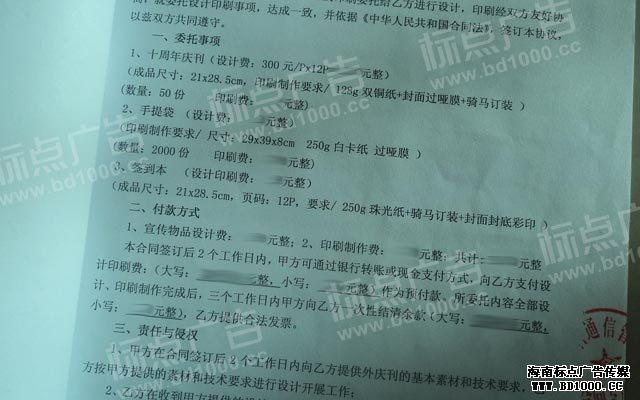 商，就委托设计印刷事项，达成一致，并依据《中华人民共和国合同法》，签订本协议，
以兹双方共同遵守。
一、委托事项
1、十周年庆刊（设计费：300 元/Px12P 元整）
（成品尺寸：21x28.5cm，印刷制作要求/ 128g 双铜纸+封面过哑膜+骑马订装 ）
(数量：50份 印刷费： 元整)
2、手提袋 （设计费： 元整）
(印刷制作要求/ 尺寸：29x39x8cm 250g 白卡纸 过哑膜 ）
(数量：2000 份 印刷费： 元整)
3、签到本 （设计费： 元整）
(成品尺寸：21x28.5cm，页码：12P，要求/ 250g 珠光纸+骑马订装+封面封底彩印 ）
二、付款方式
1、宣传物品设计费： 元整；2、印刷制作费： 元整；共计： 元整
本合同签订后 2 个工作日内，甲方可通过银行转账或现金支付方式，向乙方支付设
计印刷费：（大写： 元整，小写： 元整）作为预付款，所委托内容全部设
计、印刷制作完成后，三个工作日内甲方向乙方一次性结清余款（大写： 元整，
小写： 元整），乙方提供合法发票。
三、责任与侵权
1、甲方在合同签订后 2 个工作日内向乙方提供外庆刊的基本素材和技术要求，
方按甲方提供的素材和技术要求进行设计开展工作；
2、乙方在收到甲方提供的
通信
标点广告
www.bd1000.cc
海南标点广告传媒
WWW.BD1000.CC